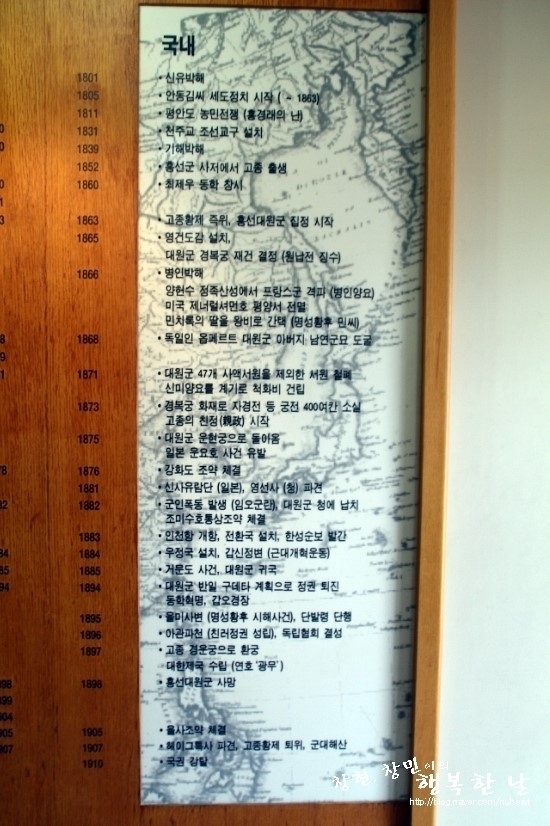 국내
1801 • 신유박해
1805 • 안동김씨 세도정치 시작 ( ~ 1863)
1811 • 평안도 농민전쟁 (홍경래의 난)
1831 • 천주교 조선교구 설치
1839 • 기해박해
1852 • 흥선군 사저에서 고종 출생
1860 • 최제우 동학 창시
1863 • 고종황제 즉위, 흥선대원군 집정 시작
1865 • 영건도감 설치,
대원군 경복궁 재건 결정 (원납전 징수)
1866 • 병인박해
양헌수 정족산성에서 프랑스군 격파 (병인양요)
미국 제너럴셔먼호 평양서 전멸
민치록의 딸을 왕비로 간택 (명성황후 민씨)
1868 • 독일인 옵페르트 대원군 아버지 남연군묘 도굴
1871 • 대원군 47개 사액서원을 제외한 서원 철폐
신미양요를 계기로 척화비 건립
1873 • 경복궁 화재로 자경전 등 궁전 400여칸 소실
고종의 친정(親政) 시작
1875 • 대원군 운현궁으로 돌아옴
일본 운요호 사건 유발
1876 • 강화도 조약 체결
1881 • 신사유람단 (일본), 영선사 (청) 파견
1882 • 군인폭동 발생 (임오군란), 대원군 청에 납치
조미수호통상조약 체결
1883 • 인천항 개항, 전환국 설치, 한성순보 발간
1884 • 우정국 설치, 갑신정변 (근대개혁운동)
1885 • 거문도 사건, 대원군 귀국
1894 • 대원군 반일 구데타 계획으로 정권 퇴진
동학혁명, 갑오경장
1895 • 을미사변 (명성황후 시해사건), 단발령 단행
1896 • 아관파천 (친러정권 성립), 독립협회 결성
1897 • 고종 경운궁으로 환궁
대한제국 수립 (연호 '광무')
1898 • 흥선대원군 사망
1905 • 을사조약 체결
1907 • 헤이그특사 파견, 고종황제 퇴위, 군대해산
1910 • 국권 강탈
창민이의
행복한 날